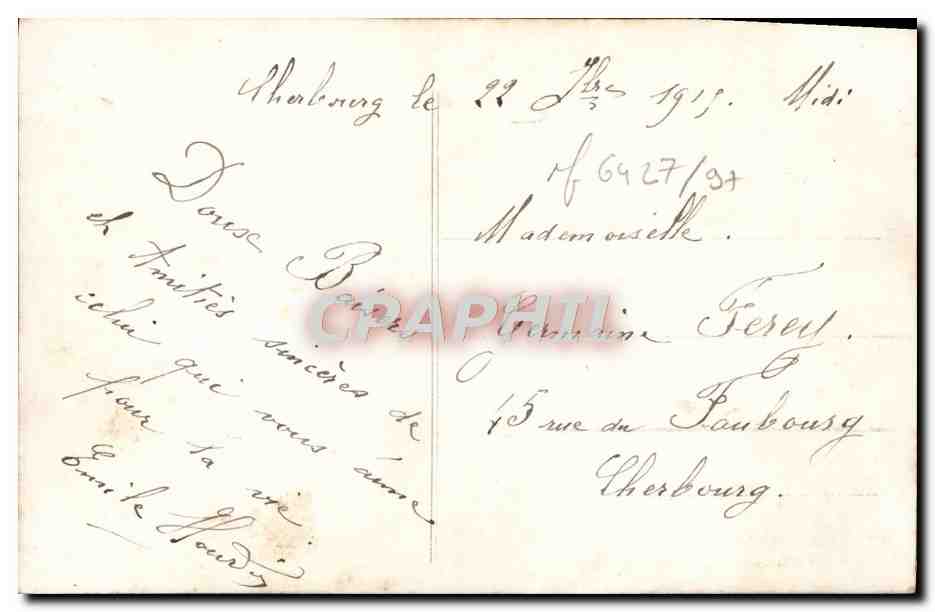 Cherbourg le 22 7bre 1915. Midi
rf 6427/97
Doux Baisers
et Amitiés sincères de
celui qui vous aime
pour la vie
Emile
Mademoiselle.
Germaine Ferey.
45 rue du Faubourg
Cherbourg.
CPAPHIL